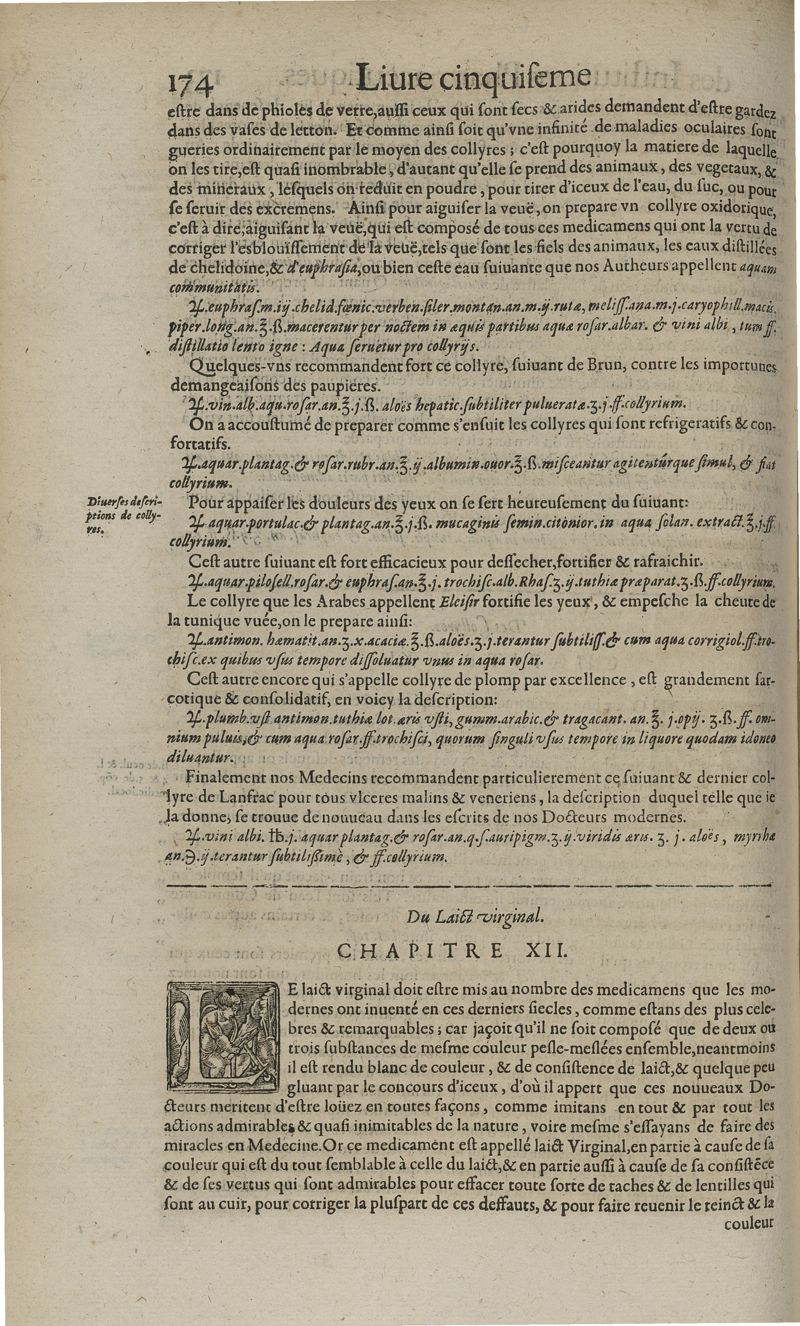 174 Liure cinquiſeme
eſtre dans de phioles de verre, auſſi ceux qui ſont ſecs & arides demandent d'eſtre gardez
dans des vaſes de letton. Et comme ainſi ſoit qu'vne infinité de maladies oculaires ſont
gueries ordinairement par le moyen des collyres; c'eſt pourquoy la matiere de laquelle
on les tire, eſt quaſi inombrable, d'autant qu'elle ſe prend des animaux, des vegetaux, &
des mineraux, leſquels on reduit en poudre, pour tirer d'iceux de l'eau, du ſuc, ou pour
ſe ſeruir des excremens. Ainſi pour aiguiſer la veuë, on prepare vn collyre oxidorique,
c'eſt à dire, aiguiſant la veuë, qui eſt compoſé de tous ces medicamens qui ont la vertu de
corriger l'esblouïſſement de la veuë, tels que ſont les fiels des animaux, les eaux diſtillées
de chelidoine, & d'euphraſia, ou bien ceſte eau ſuiuante que nos Autheurs appellent aquam
communitatis.
℞. euphraſ. m. iij. chelid. fœnic. verben. ſiler. montan. an. m. ij. rutæ, meliſſ. ana. m. j. caryophill. macis.
piper. long. an. ʒ. ß. macerentur per noctem in æquis partibus aquæ roſar. albar. & vini albi, tum ff.
diſtillatio lento igne: Aqua ſeruetur pro collyrijs.
Quelques-vns recommandent fort ce collyre, ſuiuant de Brun, contre les importunes
demangeaiſons des paupieres.
℞. vin. alb. aqu. roſar. an. ℥. j. ß. aloës hepatic. ſubtiliter puluerata. ʒ. j. ff. collyrium.
On a accouſtumé de preparer comme s'enſuit les collyres qui ſont refrigeratifs & con-
fortatifs.
℞. aquar. plantag. & roſar. rubr. an. ℥. ij. albumin. ouor. ℥. ß. miſceantur agitentúrque ſimul, & fiat
collyrium.
Diuerſes deſcri-
ptions de colly-
res.
Pour appaiſer les douleurs des yeux on ſe ſert heureuſement du ſuiuant:
℞. aquar. portulac. & plantag. an. ℥. j. ß. mucaginis ſemin. citonior. in aqua ſolan. extract. ℥. j. ff.
collyrium.
Ceſt autre ſuiuant eſt fort efficacieux pour deſſecher, fortifier & rafraichir.
℞. aquar. piloſell. roſar. & euphraſ. an. ℥. j. trochiſc. alb. Rhaſ. ʒ. ij. tuthiæ præparat. ʒ. ß. ff. collyrium.
Le collyre que les Arabes appellent Eleiſir fortifie les yeux, & empeſche la cheute de
la tunique vuée, on le prepare ainſi:
℞. antimon. hæmatit. an. ʒ. x. acaciæ. ℥. ß. aloës. ʒ. j. terantur ſubtiliſſ. & cum aqua corrigiol. ff. tro-
chiſc. ex quibus vſus tempore diſſoluatur vnus in aqua roſar.
Ceſt autre encore qui s'appelle collyre de plomp par excellence, eſt grandement ſar-
cotique & conſolidatif, en voicy la deſcription:
℞. plumb. vſt. antimon. tuthiæ lot. æris vſti, gumm. arabic. & tragacant. an. ℥. j. opij. ʒ. ß. ff. om-
nium puluis, & cum aqua roſar. ff. trochiſci, quorum ſinguli vſus tempore in liquore quodam idoneo
diluantur.
Finalement nos Medecins recommandent particulierement ce ſuiuant & dernier col-
lyre de Lanfrac pour tous vlceres malins & veneriens, la deſcription duquel telle que ie
la donne, ſe trouue de nouueau dans les eſcrits de nos Docteurs modernes.
℞. vini albi. ℔. j. aquar. plantag. & roſar. an. q. ſ. auripigm. ʒ. ij. viridis æris. ʒ. j. aloës, myrrhæ
an. ℈. ij. terantur ſubtiliſſimè, & ff. collyrium.
Du Laict virginal.
CHAPITRE XII.
LE laict virginal doit eſtre mis au nombre des medicamens que les mo-
dernes ont inuenté en ces derniers ſiecles, comme eſtans des plus cele-
bres & remarquables; car jaçoit qu'il ne ſoit compoſé que de deux ou
trois ſubſtances de meſme couleur peſle-meſlées enſemble, neantmoins
il eſt rendu blanc de couleur, & de conſiſtence de laict, & quelque peu
gluant par le concours d'iceux, d'où il appert que ces nouueaux Do-
cteurs meritent d'eſtre loüez en toutes façons, comme imitans en tout & par tout les
actions admirables & quaſi inimitables de la nature, voire meſme s'eſſayans de faire des
miracles en Medecine. Or ce medicament eſt appellé laict Virginal, en partie à cauſe de ſa
couleur qui eſt du tout ſemblable à celle du laict, & en partie auſſi à cauſe de ſa conſiſtẽce
& de ſes vertus qui ſont admirables pour effacer toute ſorte de taches & de lentilles qui
ſont au cuir, pour corriger la pluſpart de ces deffauts, & pour faire reuenir le teinct & la
couleur